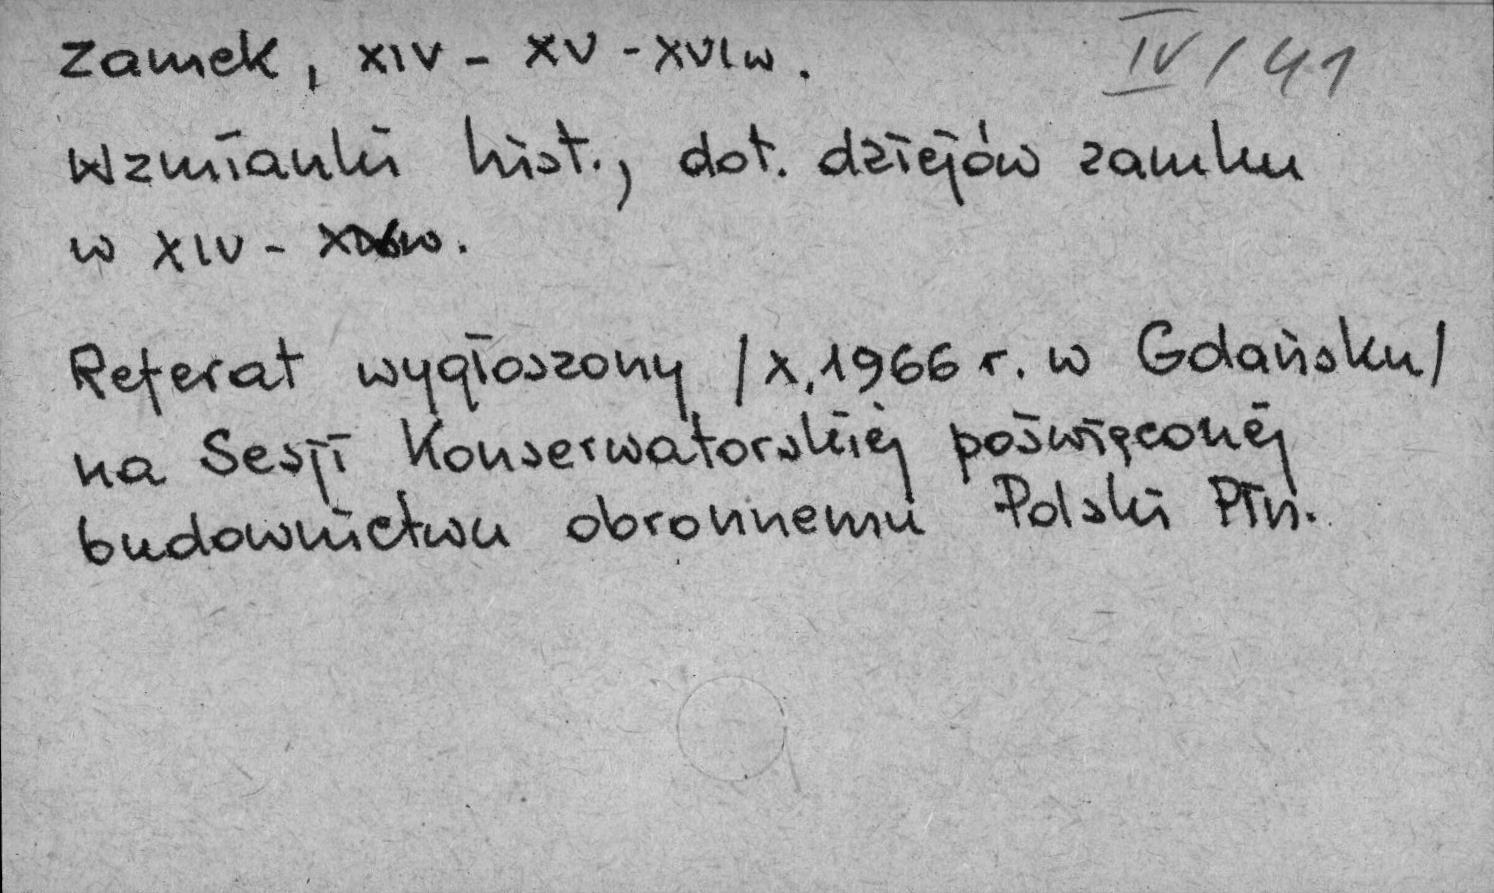 Zamek, XIV - XV - XVI w. IV/41
Wzmianki hist., dot. dziejów zamku
w XIV - w.
Referat wygłoszony /X.1966 r. w Gdańsku/
na Sesji Konserwatorskiej poświęconej
budownictwu obronnemu Polski Płn.